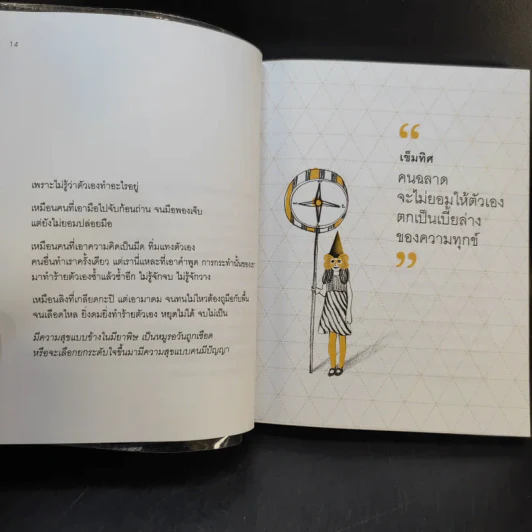 14
เพราะไม่รู้ว่าตัวเองทำอะไรอยู่
เหมือนคนที่เอามือไปจับก้อนถ่าน จนมือพองเจ็บ
แต่ยังไม่ยอมปล่อยมือ
เหมือนคนที่เอาความคิดเป็นมีด ทิ่มแทงตัวเอง
คนอื่นทำเราครั้งเดียว แต่เรานี่แหละที่เอาคำพูด การกระทำนั้นของเขา
มาทำร้ายตัวเองซ้ำแล้วซ้ำอีก ไม่รู้จักจบ ไม่รู้จักวาง
เหมือนลิงที่เกลียดกะปิ แต่เอามาดม จนทนไม่ไหวต้องถูมือกับพื้น
จนเลือดไหล ยิ่งดมยิ่งทำร้ายตัวเอง หยุดไม่ได้ จบไม่เป็น
มีความสุขแบบข้างในมียาพิษ เป็นหมูรอวันถูกเชือด
หรือจะเลือกยกระดับใจขึ้นมามีความสุขแบบคนมีปัญญา
“
เข็มทิศ
คนฉลาด
จะไม่ยอมให้ตัวเอง
ตกเป็นเบี้ยล่าง
ของความทุกข์
”